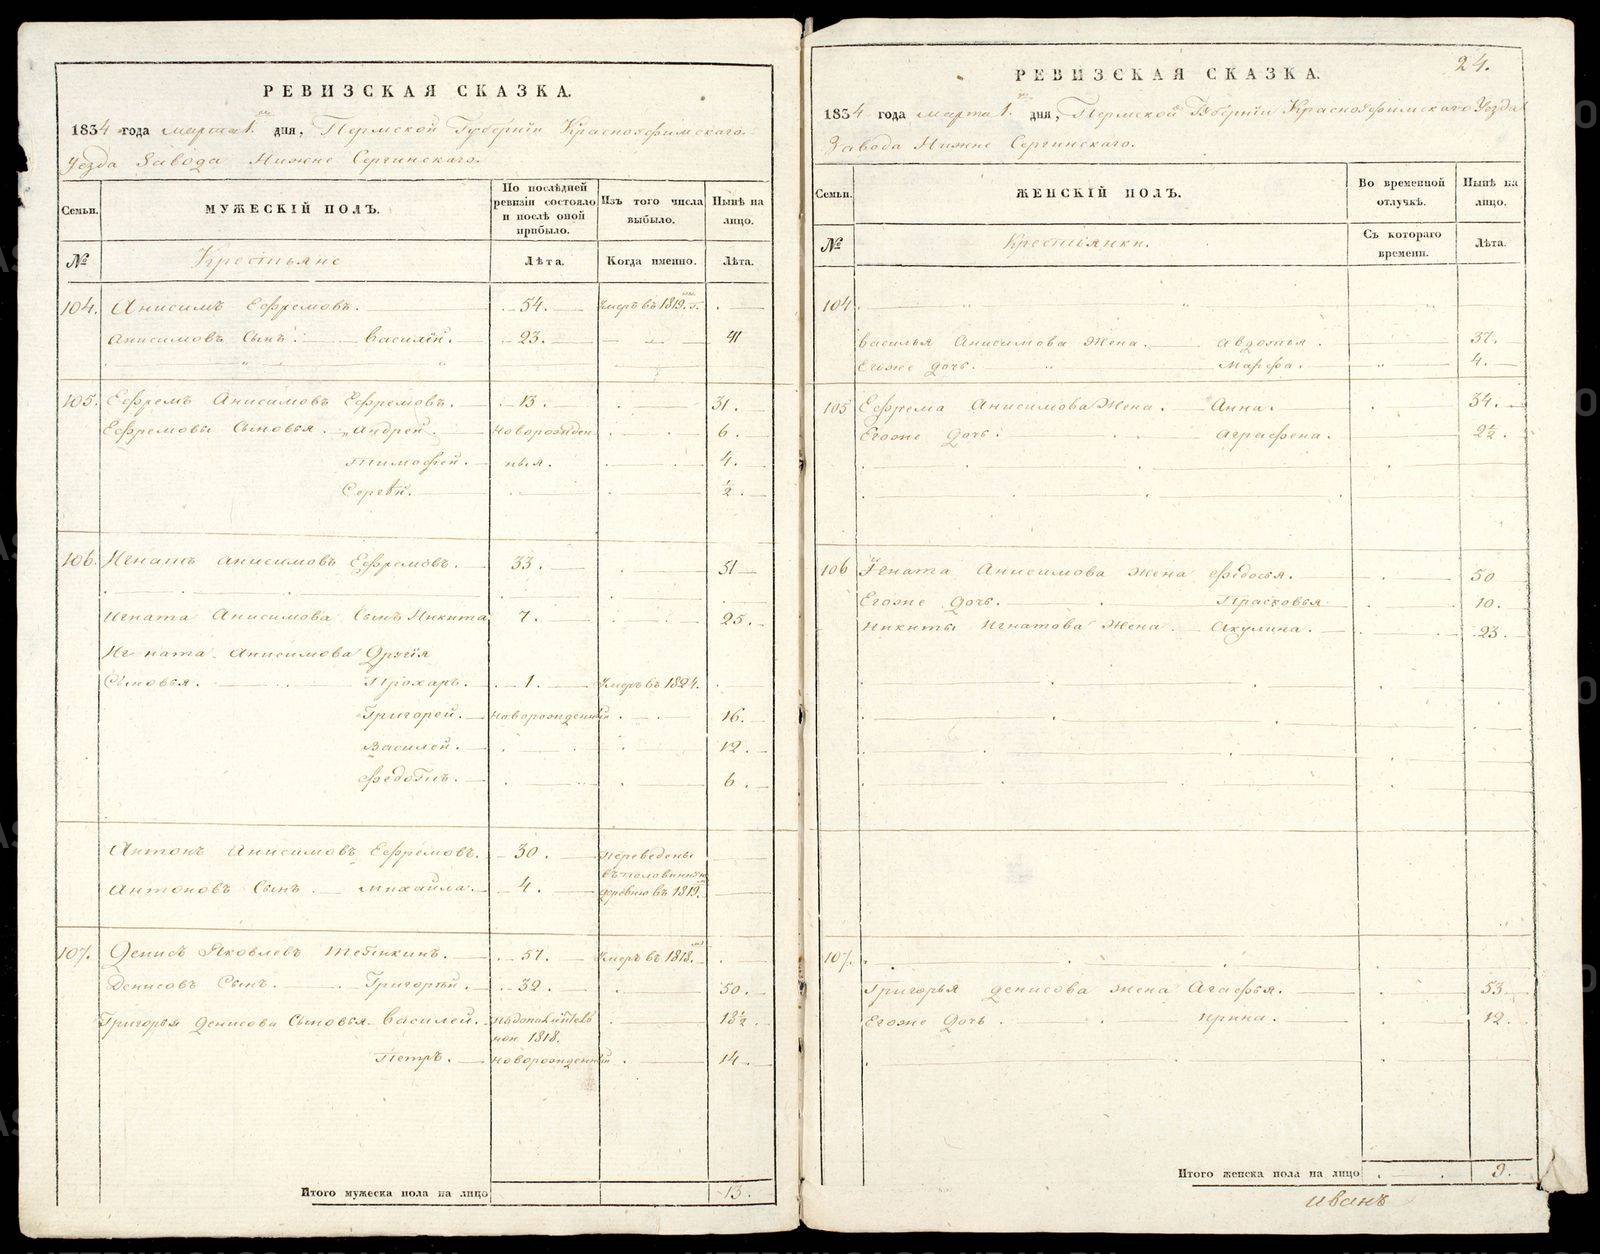 РЕВИЗСКАЯ СКАЗКА.
1834 года марта 1. дня, Пермской Губернiи Красноуфимскаго
Уезда Завода Нижне Сергинскаго.
Семьи.
МУЖЕСКIЙ ПОЛЪ.
По послѣдней ревизiи состояло и послѣ оной прибыло.
Изъ того числа выбыло.
Нынѣ на лицо.
№
Крестьяне
Лѣта.
Когда именно.
Лѣта.
104. Анисимъ Ефремовъ. 54. умеръ въ 1819. г.
Анисимовъ Сынъ. Василiй. 23. 41
105. Ефремъ Анисимовъ Ефремовъ. 13. 31.
Ефремовы Сыновья. Андрей. новорожден 6.
Тимофей. ныя. 4.
Сергѣй. ½.
106. Игнатъ Анисимовъ Ефремовъ. 33. 51
Игната Анисимова Сынъ Никита 7. 25.
Игната Анисимова Другiя
Сыновья. Прохаръ. 1. умеръ въ 1824.
Григорей. новорожденный 16.
Василей. 12.
Федотъ. 6.
Антонъ Анисимовъ Ефремовъ. 30. переведены
Антоновъ Сынъ Михайла. 4. деревню въ 1819.
107. Денисъ Яковлевъ 57. умеръ въ 1818.
Денисовъ Сынъ. Григорiй. 32. 50.
Григорья Денисова Сыновья Василей. 18½.
1818.
Петръ. новорожденный 14.
Итого мужеска пола на лицо 13.
24.
РЕВИЗСКАЯ СКАЗКА.
1834 года марта 1. дня, Пермской Губернiи Красноуфимскаго Уезда
Завода Нижне Сергинскаго.
Семьи.
ЖЕНСКIЙ ПОЛЪ.
Во временной отлучкѣ.
Нынѣ на лицо.
№
Крестьянки.
Съ котораго времени.
Лѣта.
104
Василья Анисимова Жена. Авдотья. 37.
Егоже дочь. Марфа. 4.
105 Ефрема Анисимова Жена. Анна. 34.
Егоже Дочь. Аграфена. 2½.
106 Игната Анисимова жена Федосья. 50
Егоже Дочь. Прасковья 10.
Никиты Игнатова Жена. Акулина. 23.
107.
Григорья Денисова жена Агафья. 53.
Егоже Дочь. Ирина. 12.
Итого женска пола на лицо 9.
иванъ